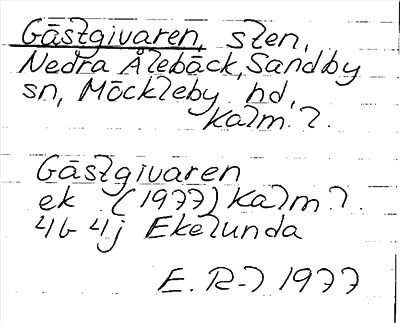 Gästgivaren, sten,
Nedra Ålebäck, Sandby
sn, Möckleby hd,
Kalm. l.
Gästgivaren
ek (1977) Kalm. l.
4G 4j Ekelunda
E. R-l 1977